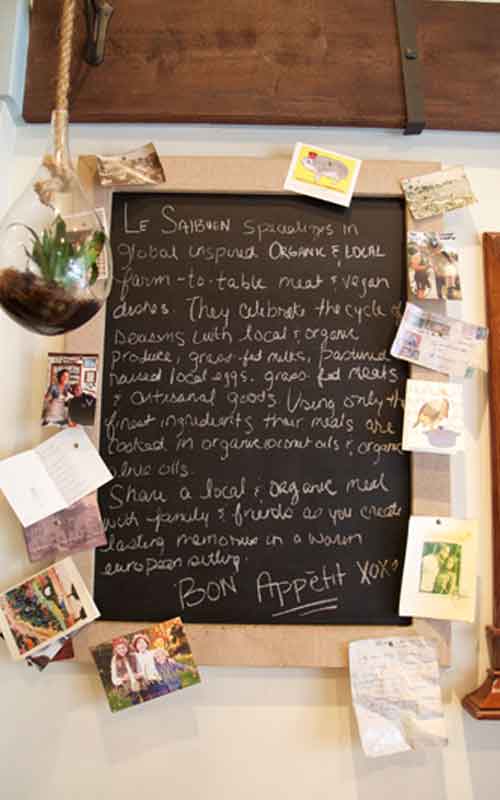 LE SAIBUEN specializes in
global inspired ORGANIC & LOCAL
farm-to-table meat & vegan
dishes. They celebrate the cycle of
seasons with local & organic
produce, grass-fed milks, pastured
raised local eggs, grass fed meats
& artisanal goods Using only the
finest ingredients their meals are
cooked in organic coconut oils & organic
olive oils.
Share a local & organic meal
with family & friends as you create
lasting memories in a warm
european setting.
BON Appétit XOXO